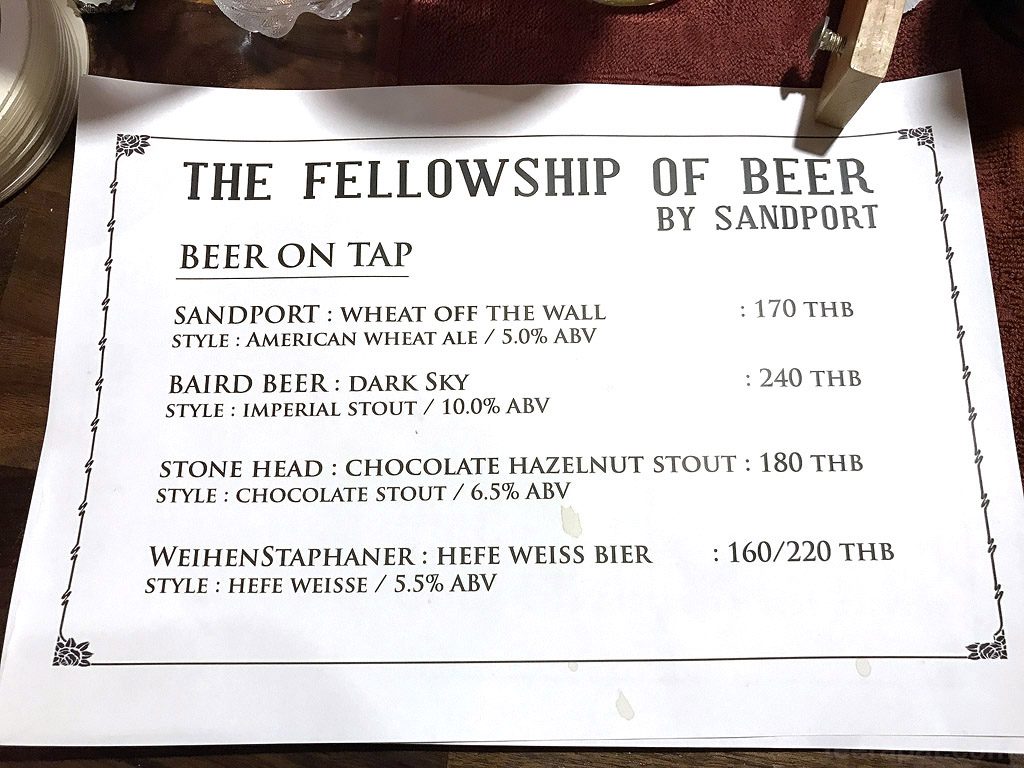 THE FELLOWSHIP OF BEER
BY SANDPORT
BEER ON TAP
SANDPORT : WHEAT OFF THE WALL : 170 THB
STYLE : AMERICAN WHEAT ALE / 5.0% ABV
BAIRD BEER : DARK SKY : 240 THB
STYLE : IMPERIAL STOUT / 10.0% ABV
STONE HEAD : CHOCOLATE HAZELNUT STOUT : 180 THB
STYLE : CHOCOLATE STOUT / 6.5% ABV
WEIHENSTAPHANER : HEFE WEISS BIER : 160/220 THB
STYLE : HEFE WEISSE / 5.5% ABV